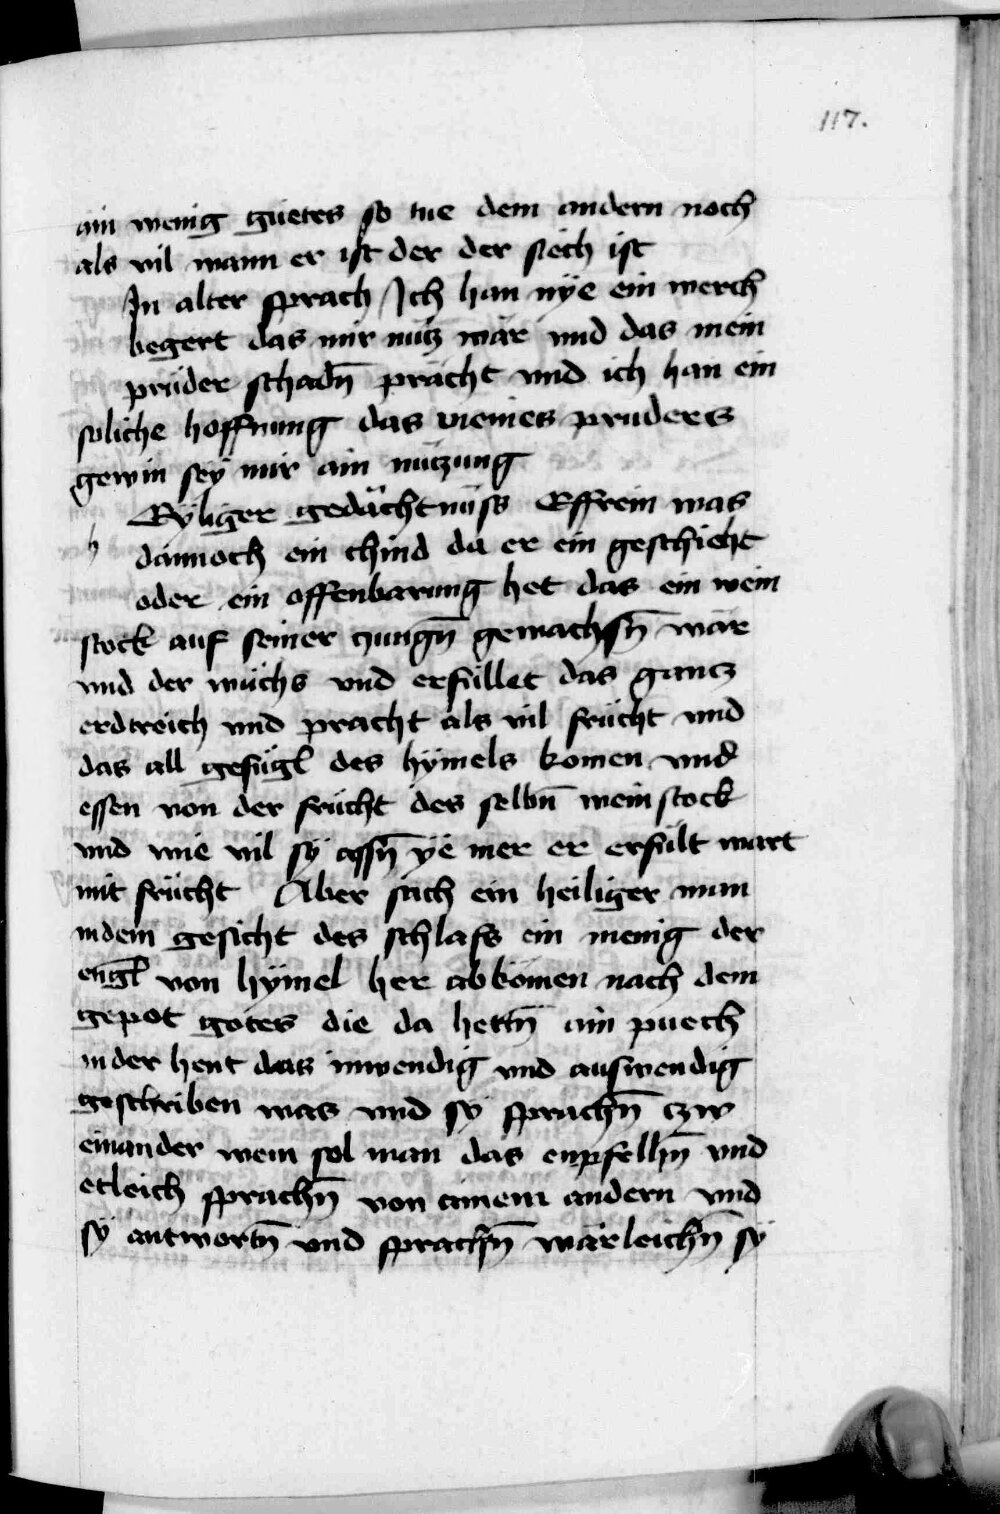 117.
ain wenig guetes so tue dem andern noch
als vil wann er ist der der siech ist
In alter sprach Ich han nÿe ein werch
begert das mir nücz wär und das mein
prüder schadn̄ prächt und ich han ein
soliche hoffnung das meines pruders
gewin seÿ mir ain nüczung
Rÿliger gedächtnüss Effrem was
h
dannoch ein chind da er ein geschicht
oder ein offenbarung het das ein wein
stock auf seiner zungn̄ gewachsn̄ wär
und der wüchs und erfüllet das gancz
erdtreich und pracht als vil frücht und
das all gefügl des hÿmels komen und
essen von der frücht des selbn̄ weinstock
und wie vil sÿ assn̄ ÿe mer er erfült wart
mit frücht Aber sach ein heiliger man
in dem gesicht des schlafs ein menig der
engl von hÿmel her ab kömen nach dem
gepot gotes die da hettn̄ ain puech
in der hent das inwendig und auswendig
geschriben was und sÿ sprachn̄ czw
einander wem sol man das enpfelhn̄ und
etleich sprachn̄ von ainem andern und
sÿ antwortn̄ und sprachn̄ wärleichn̄ sÿ